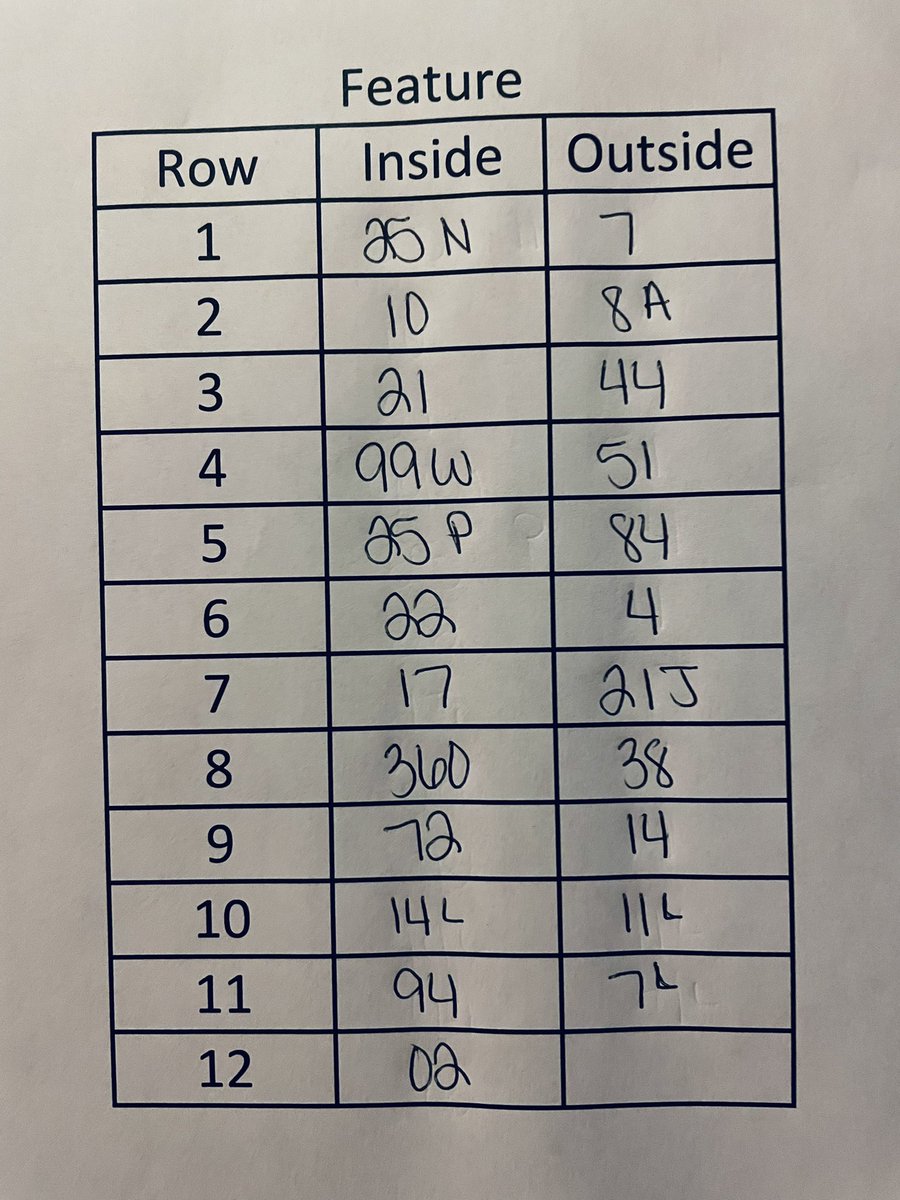 Feature
Row Inside Outside
1 25 N 7
2 10 8 A
3 21 44
4 99W 51
5 25 P 84
6 22 4
7 17 21J
8 360 38
9 72 14
10 14L 11L
11 94 7L
12 02